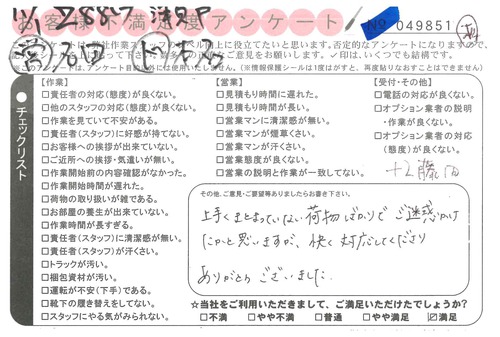 お客様不満度アンケート No 049851
【作業】
□責任者の対応(態度)が良くない。
□他のスタッフの対応(態度)が良くない。
□作業を見ていて不安がある。
□責任者(スタッフ)に好感が持てない。
□お客様への挨拶が出来ていない。
□ご近所への挨拶・気遣いが無い。
□作業開始前の内容確認がなかった。
□作業開始時間が遅れた。
□荷物の取り扱いが雑である。
□お部屋の養生が出来ていない。
□作業時間が長すぎる。
□責任者(スタッフ)に清潔感が無い。
□責任者(スタッフ)が汗くさい。
□トラックが汚い。
□梱包資材が汚い。
□運転が不安(下手)である。
□靴下の履き替えをしてない。
□スタッフにやる気がみられない。
【営業】
□見積もり時間に遅れた。
□見積もり時間が長い。
□営業マンに清潔感が無い。
□営業マンが煙草くさい。
□営業マンが汗くさい。
□営業態度が良くない。
□営業の説明と作業が一致してない。
【受付・その他】
□電話の対応が良くない。
□オプション業者の説明
・作業が良くない。
□オプション業者の対応
(態度)が良くない。
チェックリスト
その他、ご意見・ご要望等ありましたらお書き下さい。
上手くまとまっていない荷物ばかりでご迷惑かけ
たかと思いますが、快く対応してくださり
ありがとうございました。
☆当社をご利用いただきまして、ご満足いただけたでしょうか?
□不満 □やや不満 □普通 □やや満足 ☑満足